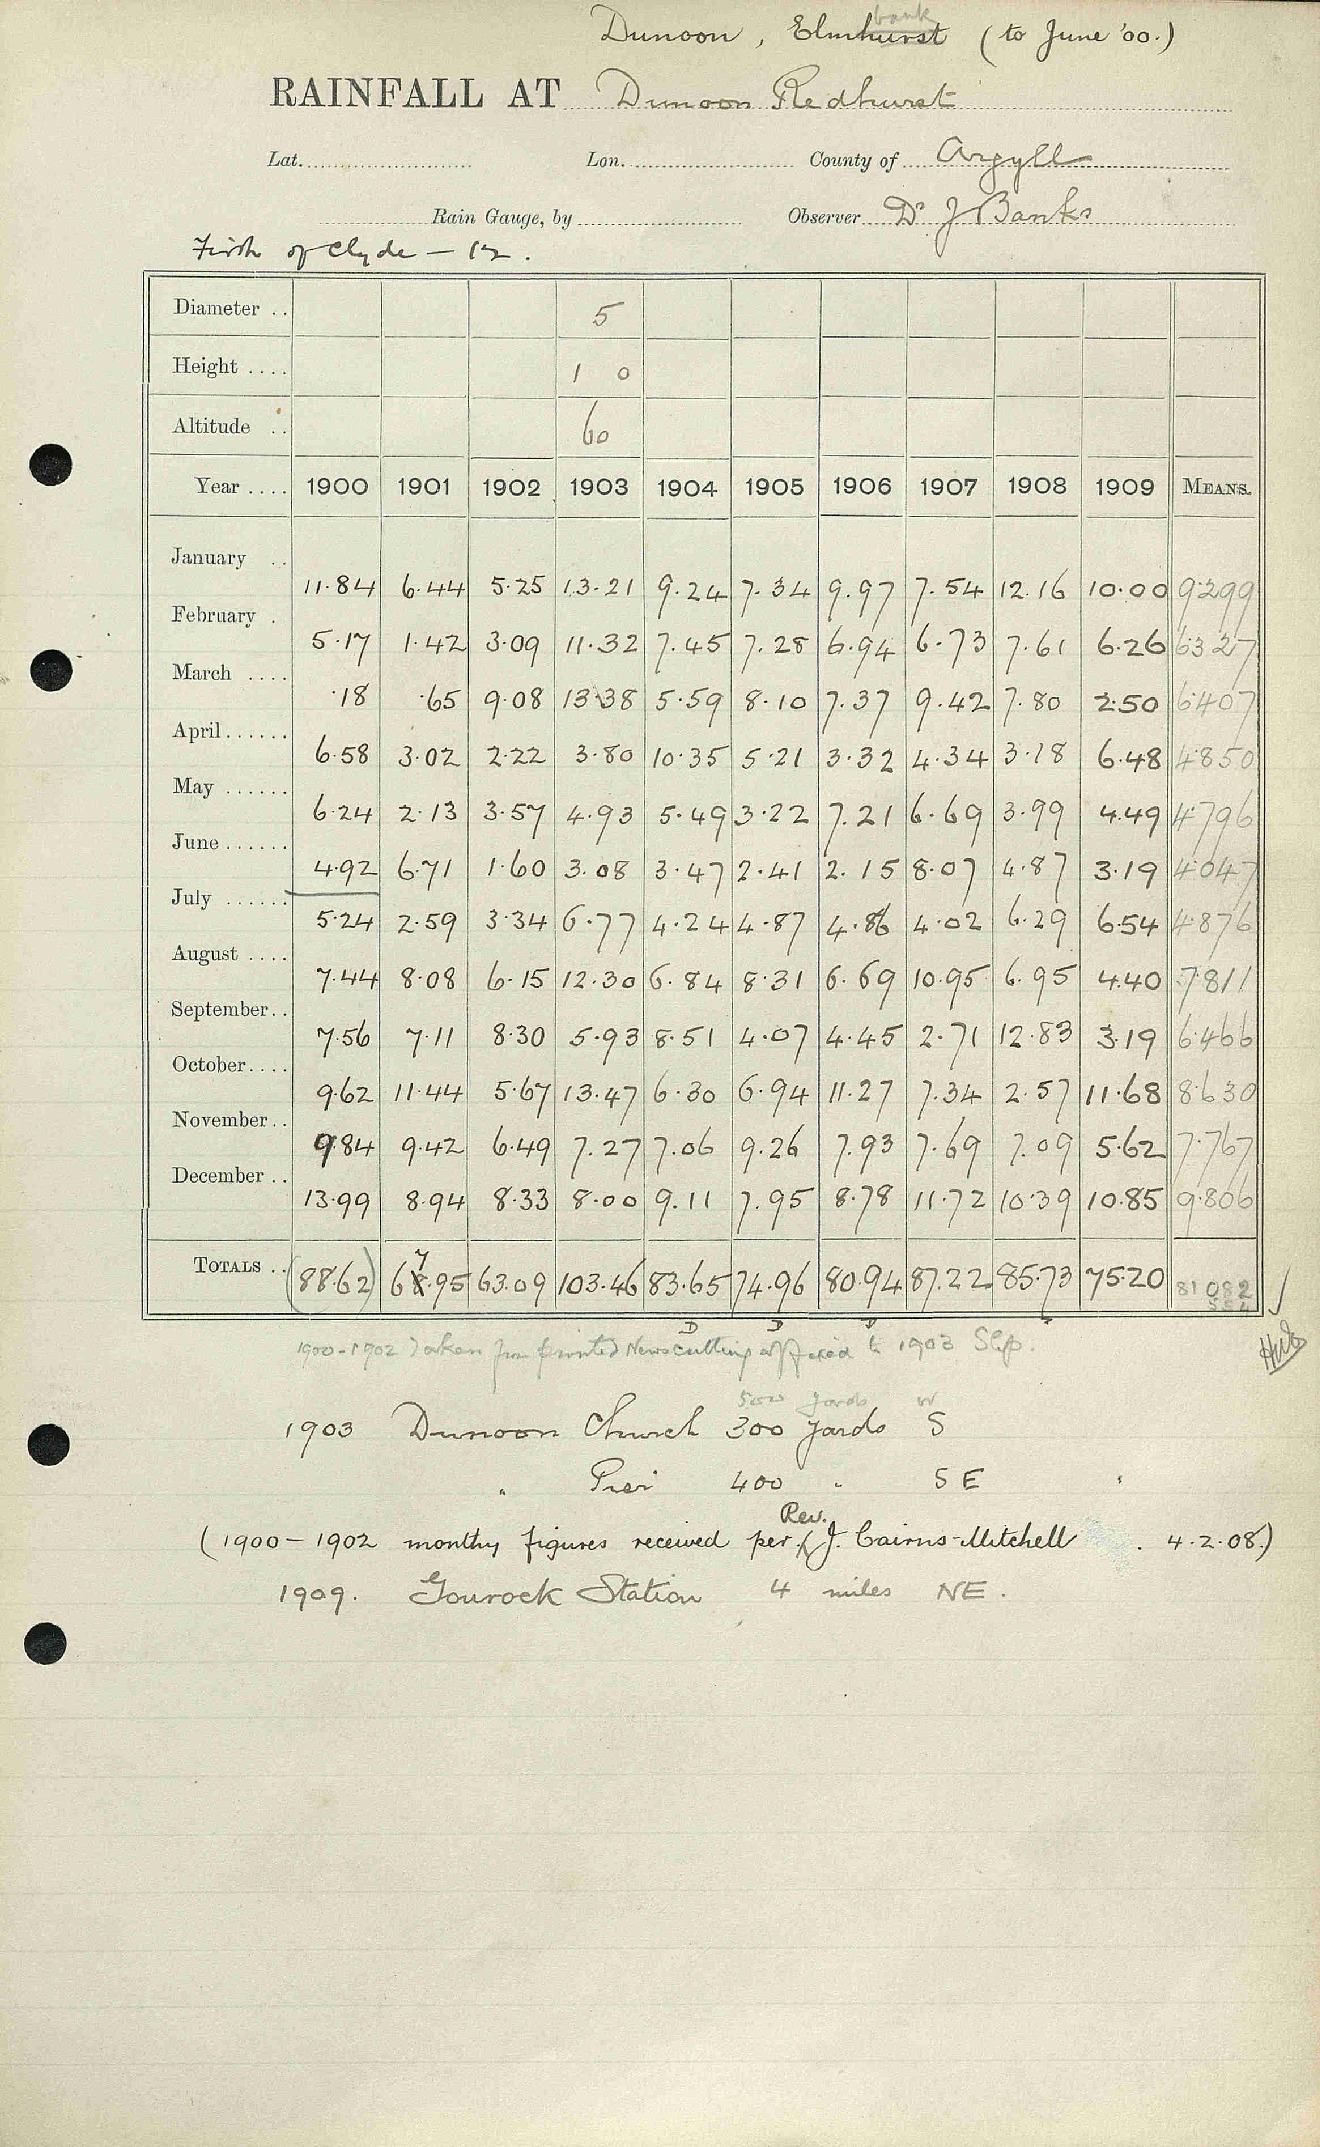 Dunoon, Elmhurst bank (to June '00.)
RAINFALL AT Dunoon Redhurst
Lat. Lon. County of Argyll
Rain Gauge, by Observer Dr J Banks
Firth of Clyde — 12.
Diameter .. 5
Height .... 1 0
Altitude .. 60
Year .... 1900 1901 1902 1903 1904 1905 1906 1907 1908 1909 MEANS.
January .. 11.84 6.44 5.25 13.21 9.24 7.34 9.97 7.54 12.16 10.00 9.299
February . 5.17 1.42 3.09 11.32 7.45 7.28 6.94 6.73 7.61 6.26 6.327
March .... .18 .65 9.08 13.38 5.59 8.10 7.37 9.42 7.80 2.50 6.407
April...... 6.58 3.02 2.22 3.80 10.35 5.21 3.32 4.34 3.18 6.48 4.850
May ...... 6.24 2.13 3.57 4.93 5.49 3.22 7.21 6.69 3.99 4.49 4.796
June...... 4.92 6.71 1.60 3.08 3.47 2.41 2.15 8.07 4.87 3.19 4.047
July ...... 5.24 2.59 3.34 6.77 4.24 4.87 4.86 4.02 6.29 6.54 4.876
August .... 7.44 8.08 6.15 12.30 6.84 8.31 6.69 10.95 6.95 4.40 7.811
September.. 7.56 7.11 8.30 5.93 8.51 4.07 4.45 2.71 12.83 3.19 6.466
October.... 9.62 11.44 5.67 13.47 6.30 6.94 11.27 7.34 2.57 11.68 8.630
November.. 9.84 9.42 6.49 7.27 7.06 9.26 7.93 7.69 7.09 5.62 7.767
December .. 13.99 8.94 8.33 8.00 9.11 7.95 8.78 11.72 10.39 10.85 9.806
TOTALS .. (88.62) 67.95 63.09 103.46 83.65 74.96 80.94 87.22 85.73 75.20 81.082
D D D
1900-1902 Taken from printed News cutting affixed to 1903 Slip.
500 yards W
1903 Dunoon Church 300 yards S
" Pier 400 " SE
Rev.
(1900-1902 monthly figures received per J. Cairns-Mitchell . 4.2.08.)
1909. Gourock Station 4 miles NE.